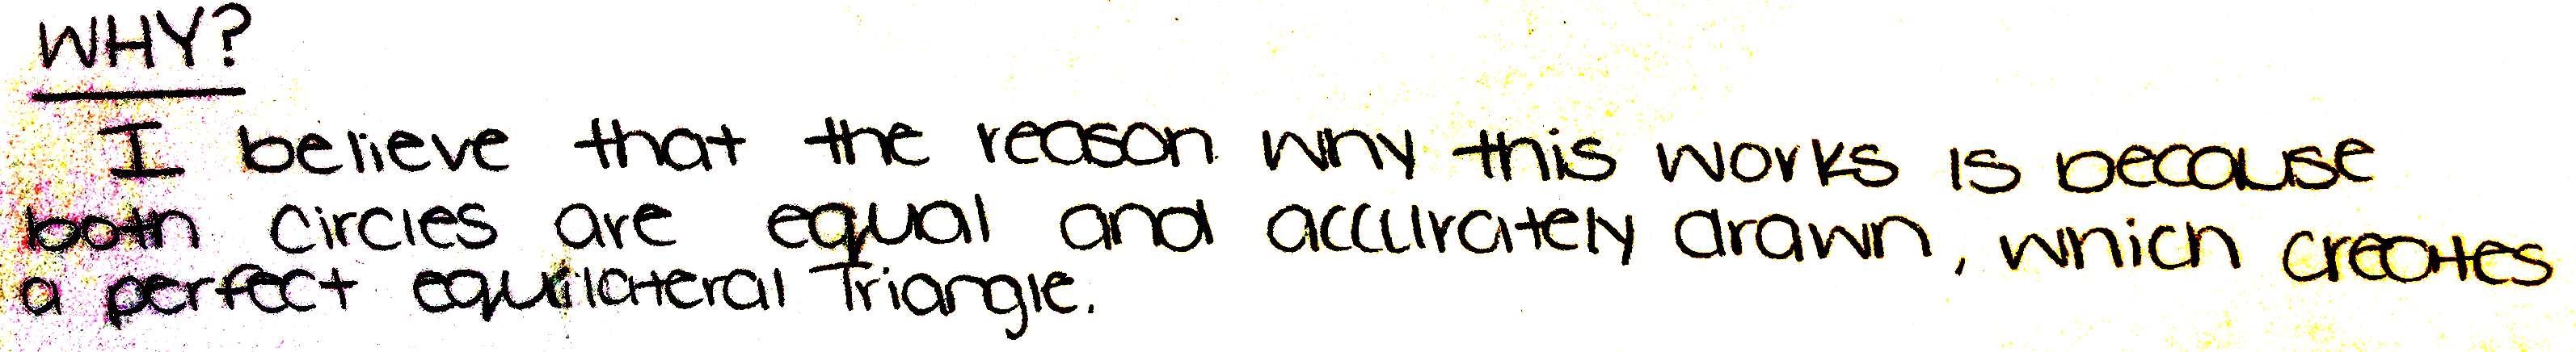 WHY?
I believe that the reason why this works is because
both circles are equal and accurately drawn, which creates
a perfect equilateral Triangle.